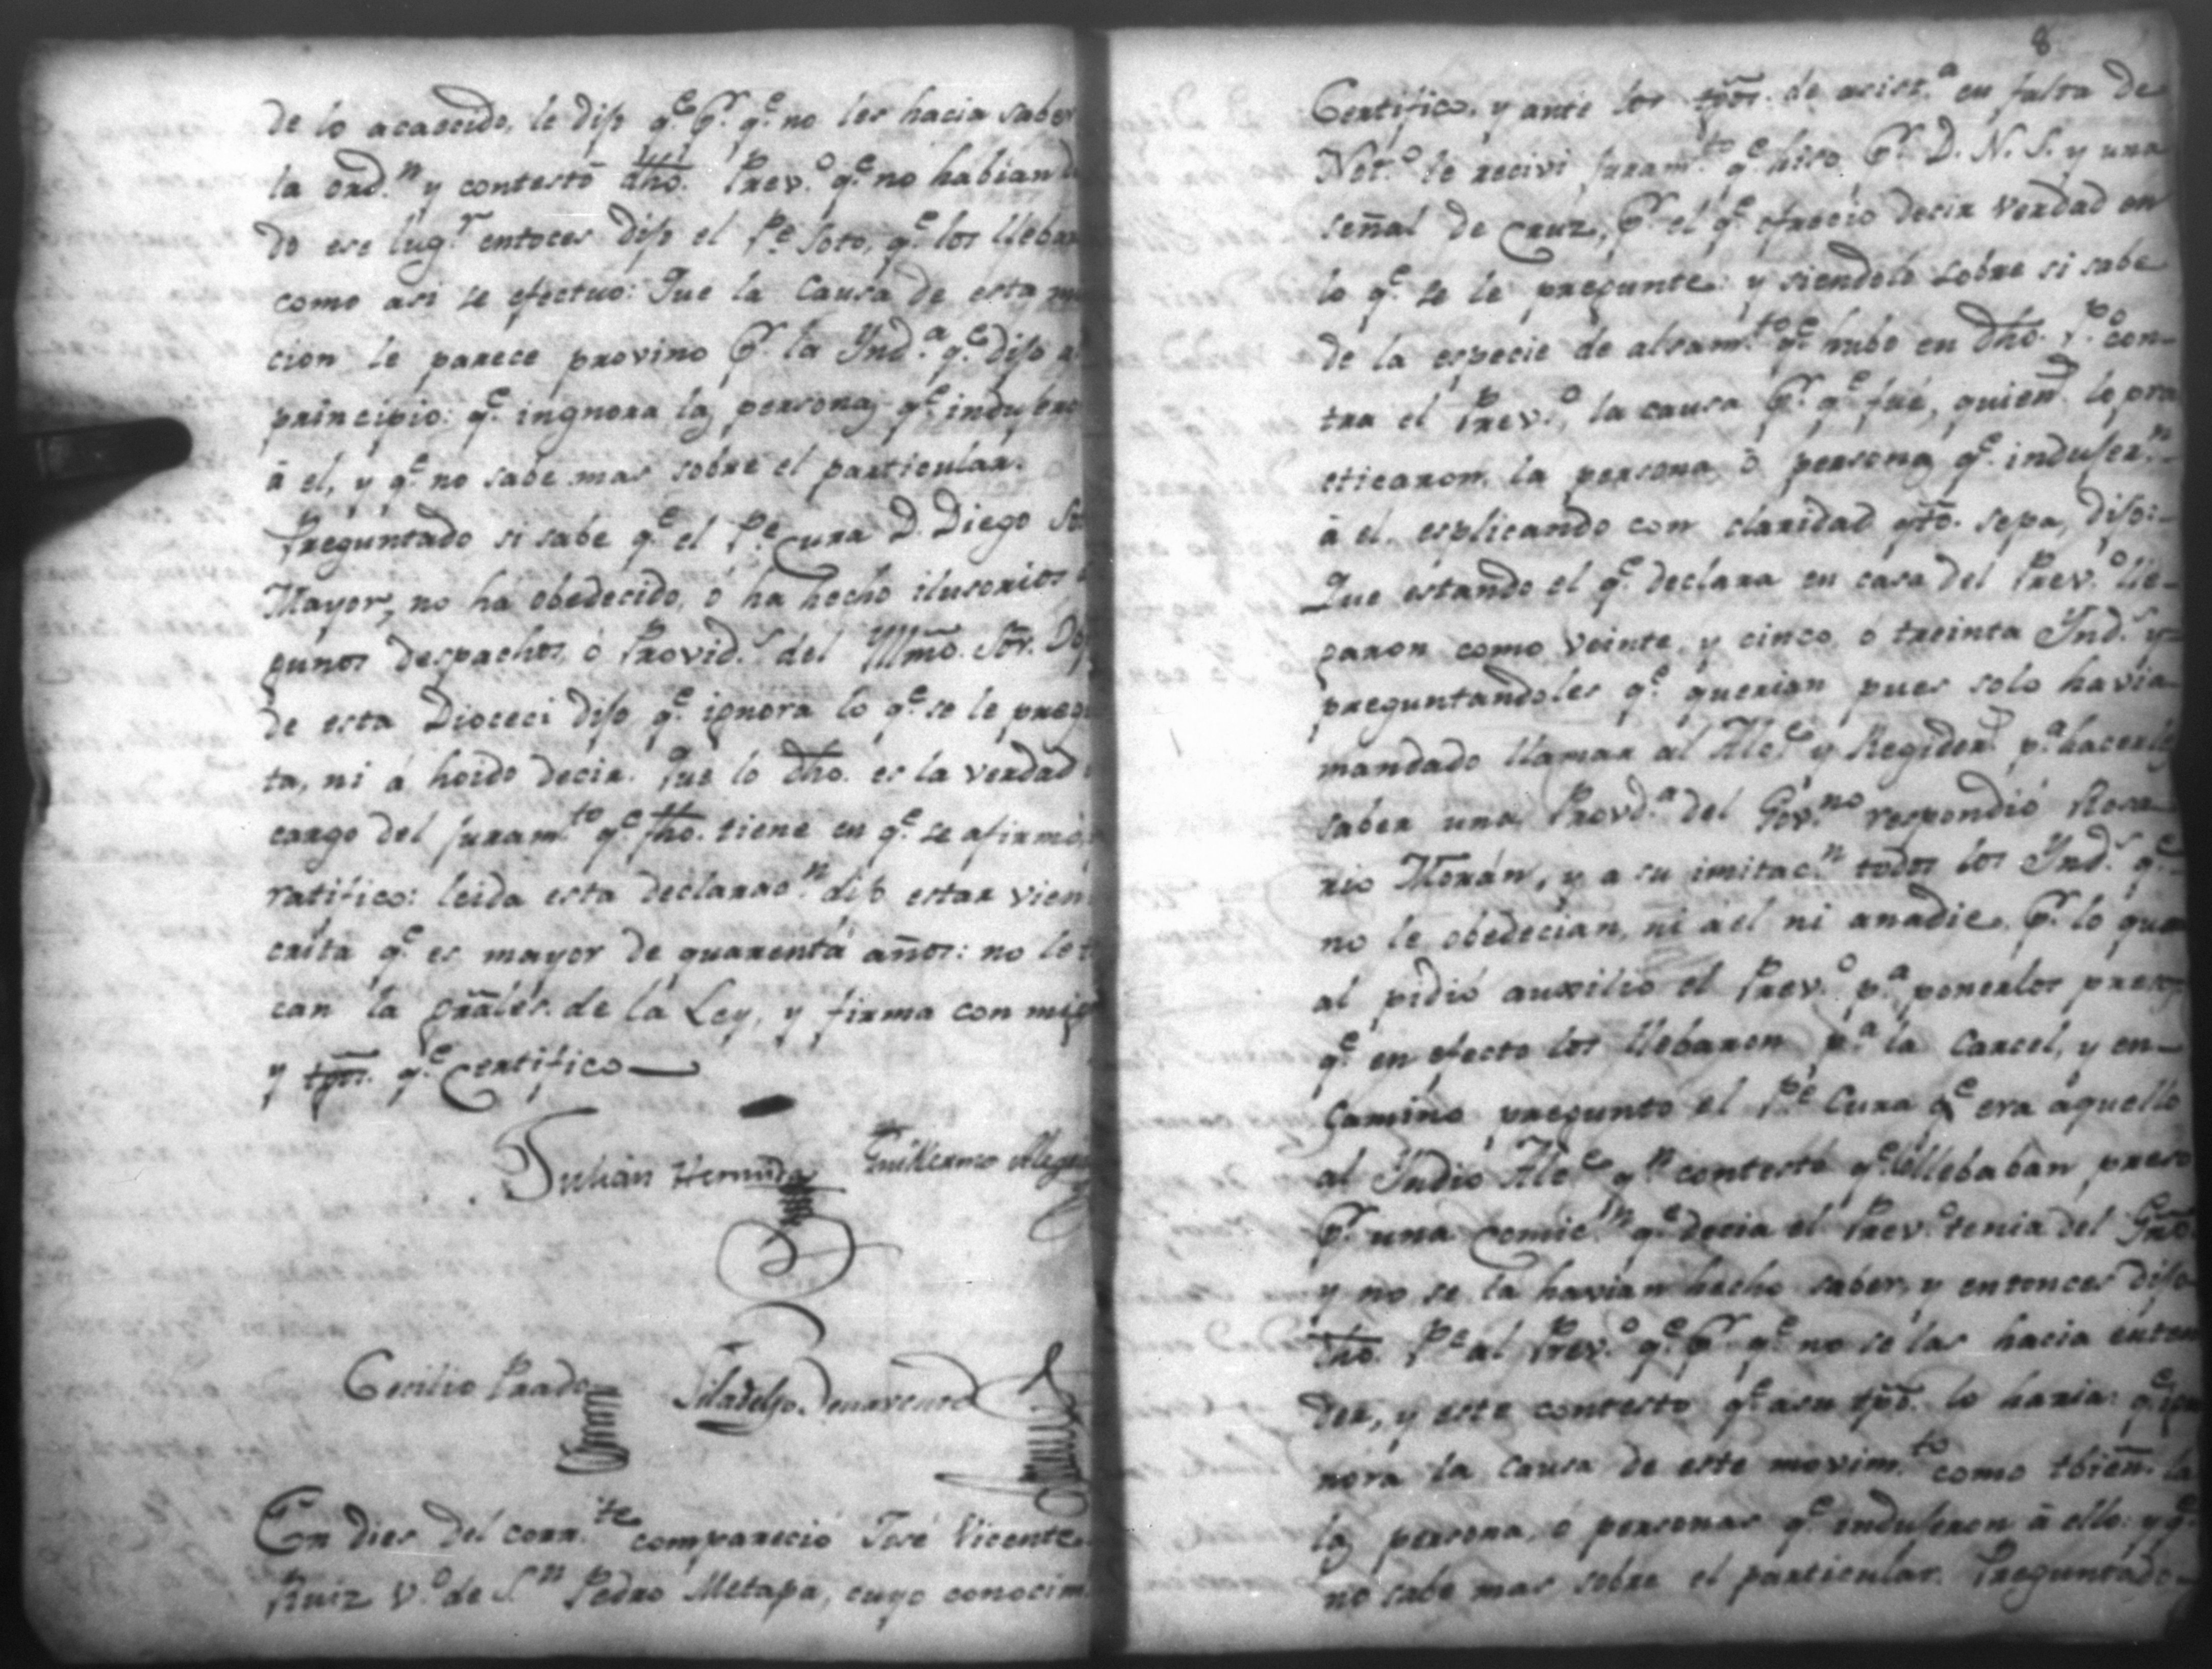 de lo acaecido, le dijo q.e p.r q.e no les hacia saber
la ord.n y contestó dho. Prev.o q.e no habian
do ese lug.r entoces dijo el P.e Soto, q.e los llebar
como asi se efectuo: Que la causa de esta
cion le parece provino p.r la Ynd.a q.e dijo
principio: q.e ingnora las personas q.e indujero
á el, y q.e no sabe mas sobre el particular.
Preguntado si sabe q.e el P.e Cura D. Diego So
Mayor, no ha obedecido, ó ha hecho ilusorios
gunos despachos, ó Provid.s del Yllmõ. Sõr.
de esta Dioceci dijo q.e ignora lo q.e se le pregu
ta, ni á hoido decir. Que lo dho. es la verdad
cargo del juram.to q.e fho. tiene en q.e se afirmó,
ratifico: leida esta declarac.n dijo estar vien
crita q.e es mayor de quarenta años: no le
can la grãles. de la Ley, y firma con migo
y tgos. q.e Certifico
Julián Hernãda Guillermo
Cecilio Prado Filadelfo Benavente
En dies del corr.te compareció José Vicente
Ruiz V.o de S.n Pedro Metapa, cuyo conocim
8
Certifico, y ante los tgos. de asist.a en falta de
Not.o le recivi juram.to q.e hiso p.r D. N. S. y una
señal de Cruz, p.r el q.e ofrecio decir verdad en
lo q.e se le pregunte: y siendolo sobre si sabe
de la especie de alsam.to q.e hubo en dho. P.o con-
tra el Prev.o, la causa p.r q.e fué, quien.s lo pra
cticaron, la persona, ó personas q.e indujer.n
á el, esplicando con claridad qto. sepa, dijo:
Que estando el q.e declara en casa del Prev.o lle-
garon como veinte, y cinco, ó treinta Ynd.s y
preguntandoles q.e querian pues solo havia
mandado llamar al Alc.e y Regidor.s p.a hacerles
saber una Provd.a del Gov.no respondió Rosa-
rio Morán, y a su imitac.n todos los Ynd.s q.e
no le obedecian, ni a el ni anadie, p.r lo qua
al pidió auxilio el Prev.o p.a ponerlos presos
q.e en efecto los llebaron p.a la Carcel, y en
Camino pregunto el P.e Cura q.e era aquello
al Yndio Alc.e q.n contestó q.e lo llebaban preso
p.r una comic.n q.e decia el Prev.o tenia del Gno.
y no se la havian hecho saber, y entonces dijo
dho. P.e al Prev.o q.e p.r q.e no se las hacia enten
der, y este contesto q.e asu tpo. lo haria: q.e ig
nora la causa de este movim.to como tbien. la
las persona, ó personas q.e indujeron á ello: y q.e
no sabe mas sobre el particular. Preguntado